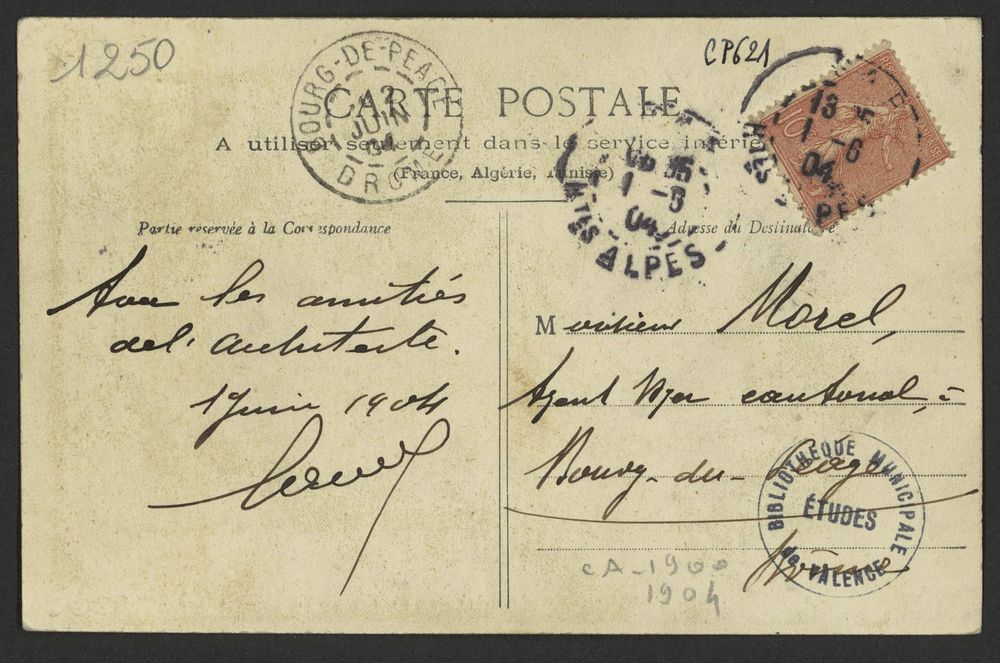 1250
CP621
BOURG-DE-PEAGE
2
JUIN
04
DROME
CARTE POSTALE
A utiliser seulement dans le service intérie
(France, Algérie, Tunisie)
13
1 -6
04
PES
HTES
1 -6
04
HTES ALPES
Partie réservée à la Correspondance
Adresse du Destinataire
Avec les amitiés
de l'architecte.
1 Juin 1904
Monsieur Morel,
Agent Voyer cantonal, à
Bourg-du-Péage
Drôme
BIBLIOTHÈQUE MUNICIPALE
ÉTUDES
de VALENCE
CA-1900
1904